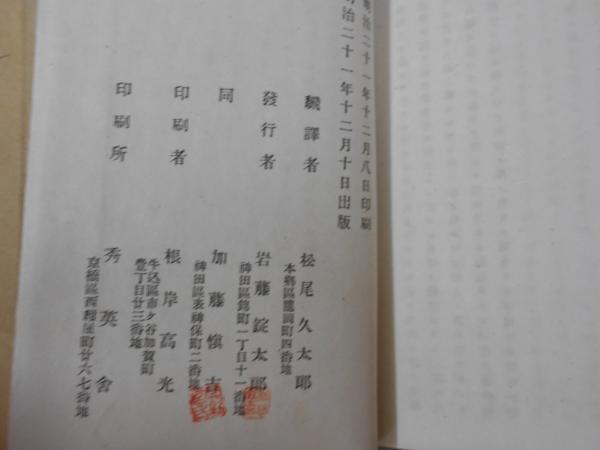 明治二十一年十二月八日印刷
明治二十一年十二月十日出版
飜譯者 松尾久太郎
本鄕區龍岡町四番地
發行者 岩藤錠太郎
神田區錦町一丁目十一番地
同 加藤愼吉
神田區表神保町二番地
印刷者 根岸高光
牛込區市ヶ谷加賀町
壹丁目廿三番地
印刷所 秀英舍
京橋區西紺屋町廿六七番地